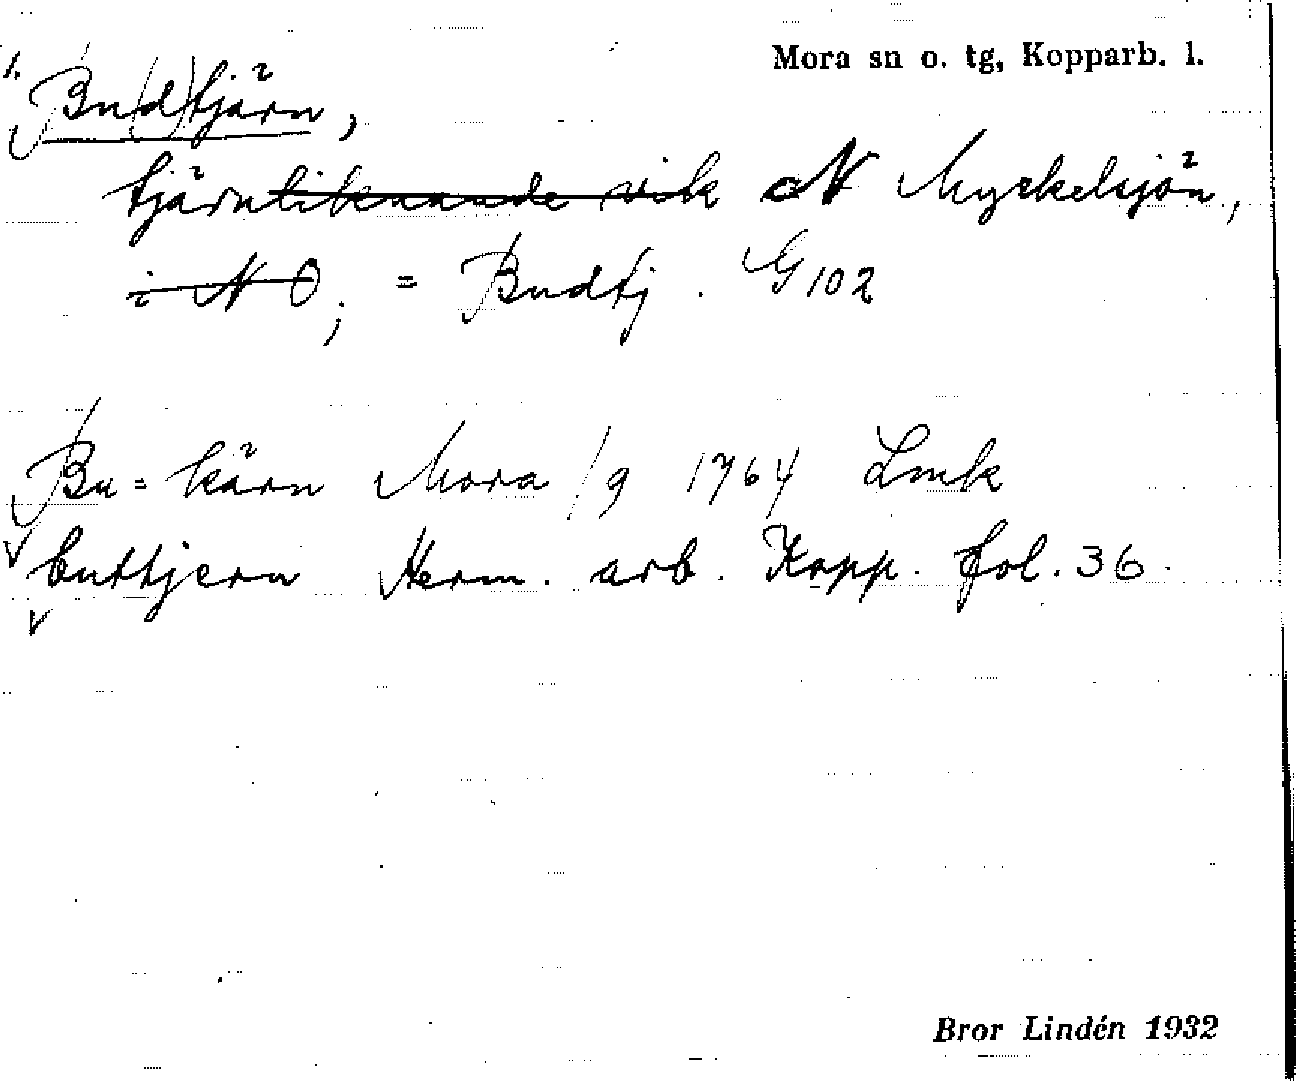 Mora sn o. tg, Kopparb. l.
1. Bu(d)tjärn,
tjärnliknande vik N Myckelsjön,
i N O; = Budtj. G 102
Bu = kärn Mora /9 1764 Lmk
buttjern Herm. arb. Kopp. fol. 36.
Bror Lindén 1932